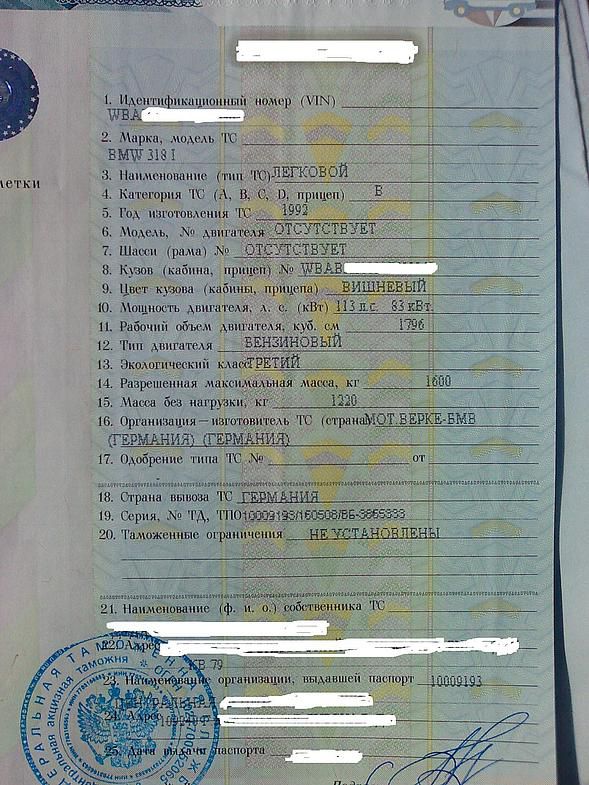 метки
1. Идентификационный номер (VIN)
WBA
2. Марка, модель ТС
BMW 318 I
3. Наименование (тип ТС) ЛЕГКОВОЙ
4. Категория ТС (A, B, C, D, прицеп) B
5. Год изготовления ТС 1992
6. Модель, № двигателя ОТСУТСТВУЕТ
7. Шасси (рама) № ОТСУТСТВУЕТ
8. Кузов (кабина, прицеп) № WBAB
9. Цвет кузова (кабины, прицепа) ВИШНЕВЫЙ
10. Мощность двигателя, л. с. (кВт) 113 л.с. 83 кВт.
11. Рабочий объем двигателя, куб. см 1796
12. Тип двигателя БЕНЗИНОВЫЙ
13. Экологический класс ТРЕТИЙ
14. Разрешенная максимальная масса, кг 1600
15. Масса без нагрузки, кг 1220
16. Организация–изготовитель ТС (страна МОТ.ВЕРКЕ-БМВ
(ГЕРМАНИЯ) (ГЕРМАНИЯ)
17. Одобрение типа ТС № от
18. Страна вывоза ТС ГЕРМАНИЯ
19. Серия, № ТД, ТПО 10009193/160508/В6-3865333
20. Таможенные ограничения НЕ УСТАНОВЛЕНЫ
21. Наименование (ф. и. о.) собственника ТС
22. Адрес
КВ 79
23. Наименование организации, выдавшей паспорт 10009193
ЦЕНТРАЛЬНАЯ
24. Адрес
25. Дата выдачи паспорта